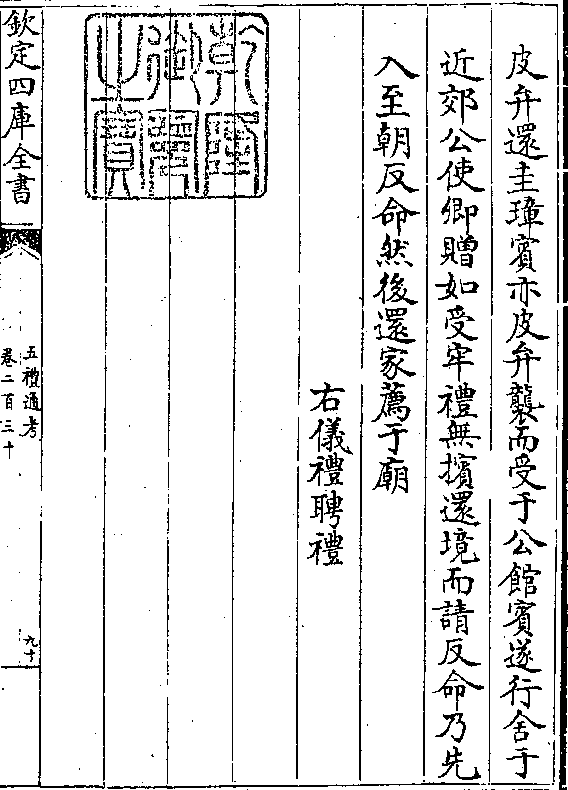 皮弁還圭璋賓亦皮弁襲而受于公館賓遂行舍于
近郊公使卿贈如受牢禮無擯還境而請反命乃先
入至朝反命然後還家薦于廟
右儀禮聘禮
乾隆御覽之寶
欽定四庫全書
五禮通考
卷二百三十
九十